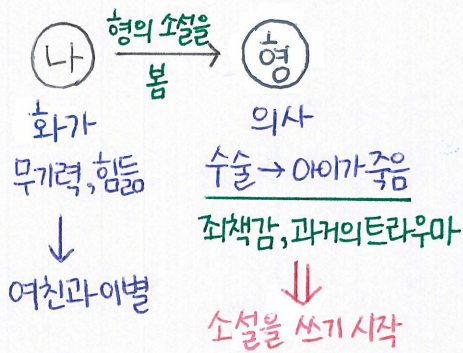 나
형의 소설을
봄
형
화가
무기력, 힘듦
여친과 이별
의사
수술 → 아이가 죽음
죄책감, 과거의 트라우마
소설을 쓰기 시작